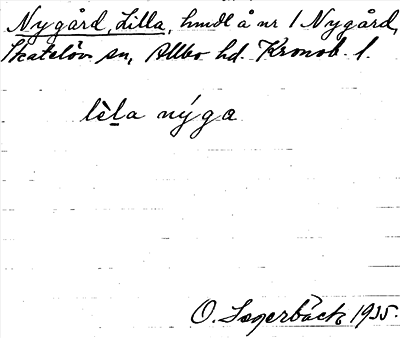 Nygård, Lilla, hmdl å nr 1 Nygård,
Skatelövs sn, Allbo hd. Kronob. l.
lìl̠a nýga
O. Sagerbäck 1935.